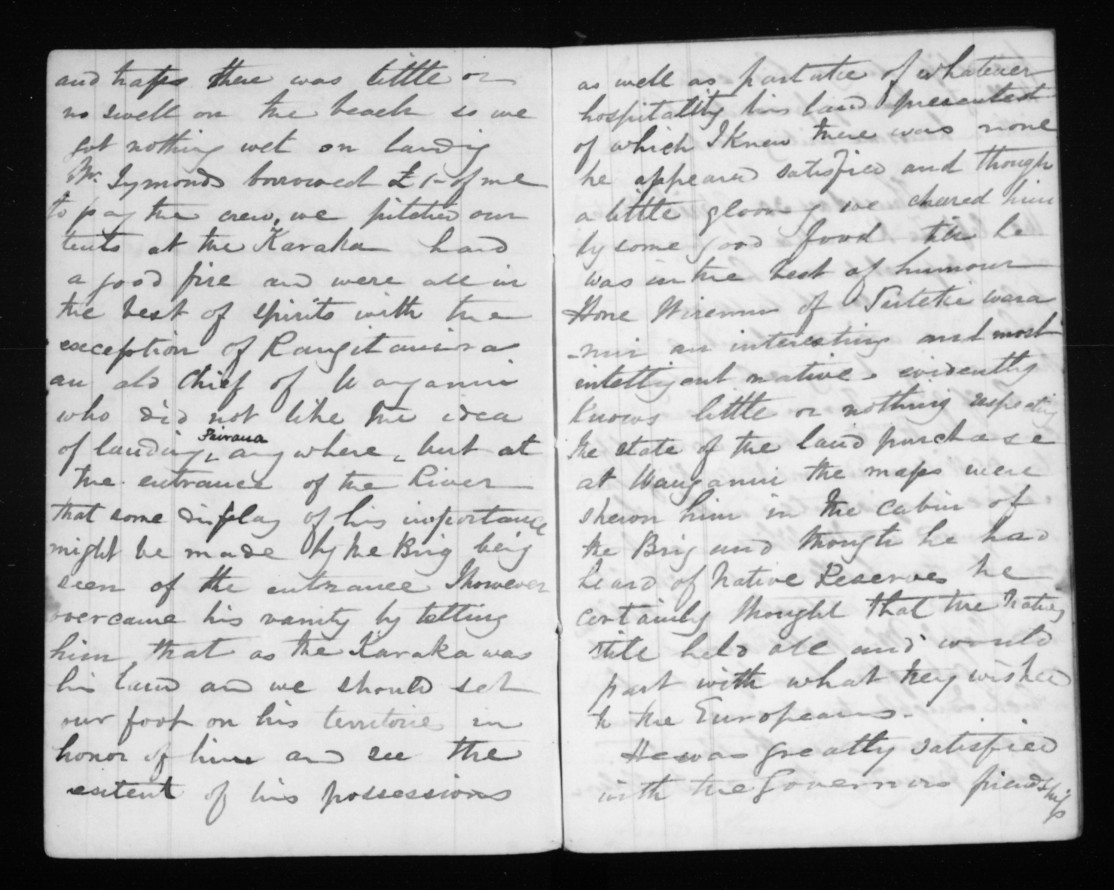 and traps there was little or
no swell on the beach so we
got nothing wet on landing
Mr. Symonds borrowed £1- of me
to pay the crew, we pitched our
tents at the Karaka had
a good fire and were all in
the best of spirits with the
exception of Rangitauira
an old Chief of Wanganui
who did not like the idea
of landing anywhere, but at
the entrance of the River
that some display of his importance
might be made by the Brig being
seen of the entrance I however
overcame his vanity by telling
him, that as the Karaka was
his land and we should set
our foot on his territorie in
honor of him and see the
extent of his possessions
as well as partake of whatever
hospitality his land presented
of which I knew there was none
he appeared satisfied and though
a little gloomy we cheered him
by some good food till he
was in the best of humour
Hone Wiremu of
an interesting and most
intelligent native evidently
knows little or nothing respecting
the state of the land purchase
at Wanganui the maps were
shewn him in the cabin of
the Brig and though he had
heard of Native Reserves he
certainly thought that the Natives
still held all and would
part with what they wished
to the Europeans-
He was greatly satisfied
with the Governors friendship